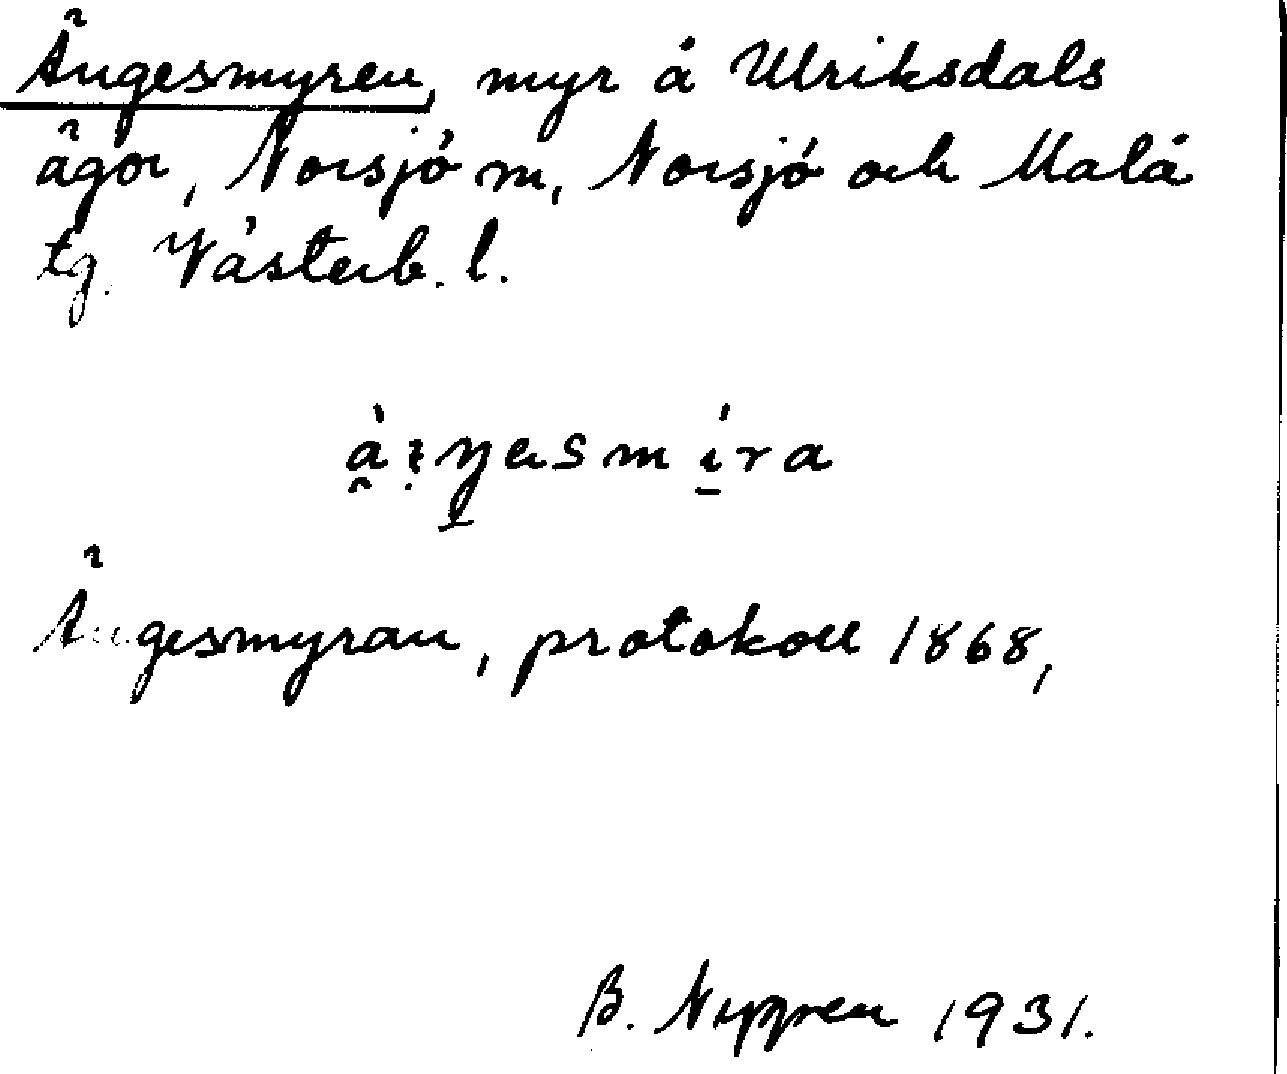 Ängesmyren, myr å Ulriksdals
ägor, Norsjö sn, Norsjö och Malå
tg. Västerb. l.
Ängesmyran, protokoll 1868,
B. Nygren 1931.